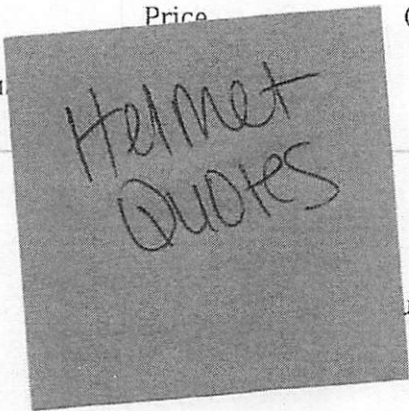 Price
Helmet
Quotes